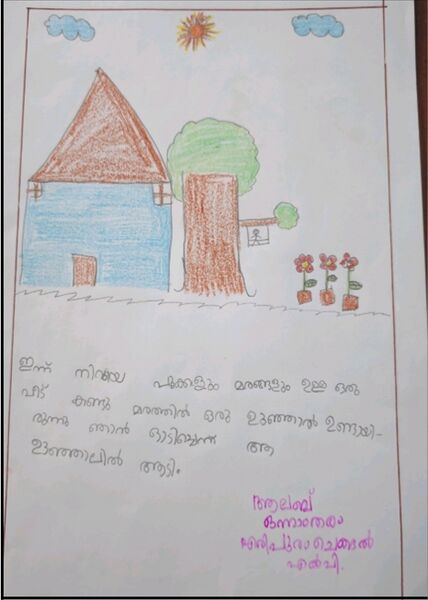 ഇന്ന് നിറയെ പൂക്കളും മരങ്ങളും ഉള്ള ഒരു
വീട് കണ്ടു മരത്തിൽ ഒരു ഊഞ്ഞാൽ ഉണ്ടായി-
രുന്നു ഞാൻ ഓടിച്ചെന്ന് ആ
ഊഞ്ഞാലിൽ ആടി.
ഒന്നാംതരം
എൽപി.